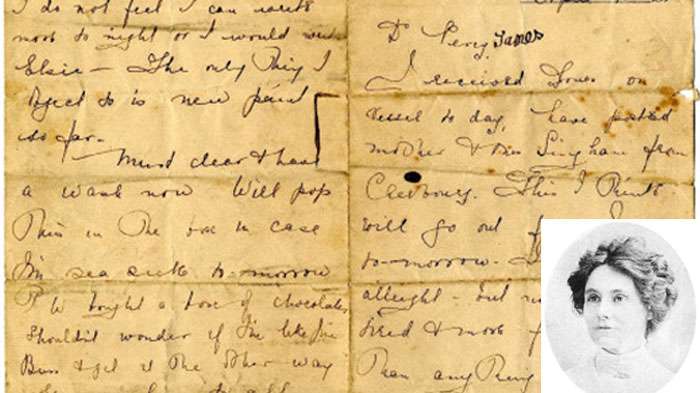 I do not feel I can write
more to night or I would write
Elsie — The only thing I
object to is new paint
so far.
Must clear & have
a wash now Will pop
This in The box in case
I'm sea sick to-morrow
bought a box of chocolates
Shouldn't wonder if I'm like Jim
Buss & get it The other way
Dr Percy James
I received Yours on
vessel to day, have posted
mother & Miss Singham from
Cherbourg. This I Think
will go out
to-morrow.
allright - but
tired & more
Than any Thing